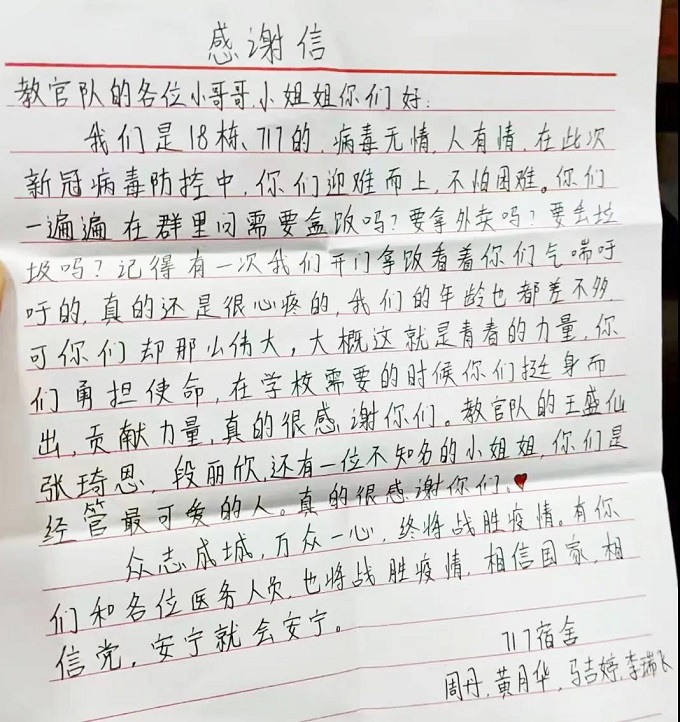 感谢信
教官队的各位小哥哥,小姐姐你们好:
我们是18栋、717的,病毒无情,人有情,在此次
新冠病毒防控中,你们迎难而上,不怕困难。你们
一遍遍在群里问需要盒饭吗?要拿外卖吗?要丢垃
圾吗?记得有一次我们开门拿饭看着你们气喘吁
吁的,真的还是很心疼的,我们的年龄也都差不多,
可你们却那么伟大,大概这就是青春的力量,你
们勇担使命,在学校需要的时候你们挺身而
出,贡献力量,真的很感谢你们。教官队的王盛仙
张琦恩,段丽欣,还有一位不知名的小姐姐,你们是
经管最可爱的人。真的很感谢你们.♥
众志成城,万众一心,终将战胜疫情。有你
们和各位医务人员,也将战胜疫情,相信国家,相
信党,安宁就会安宁。
717宿舍
周丹,黄月华,马吉婷,李瑞飞